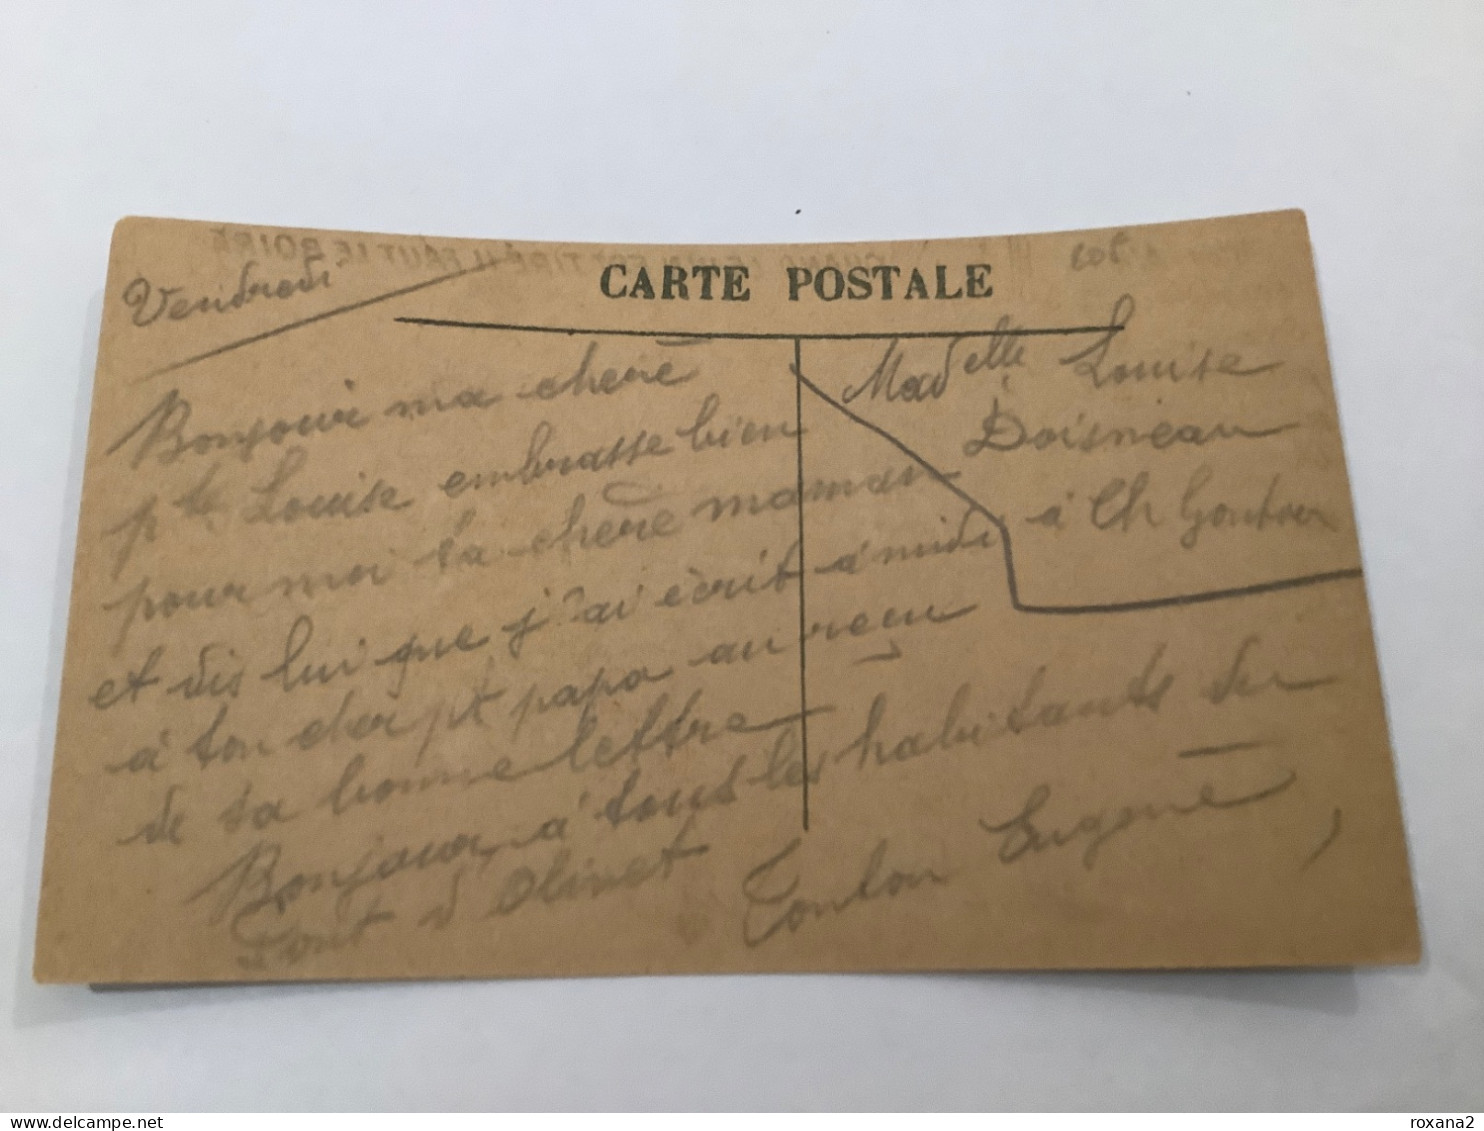 CARTE POSTALE
Vendredi
Bonjour ma chere
pte Louise embrasse bien
pour moi ta chere maman
et dis lui que j'ai écrit à midi
à ton cher pt papa au reçu
de sa bonne lettre
Bonjour à tous les habitants du
Pont d Olivet
Tonton Eugene
Madelle Louise
Doisneau
à Ch Gontier
roxana2